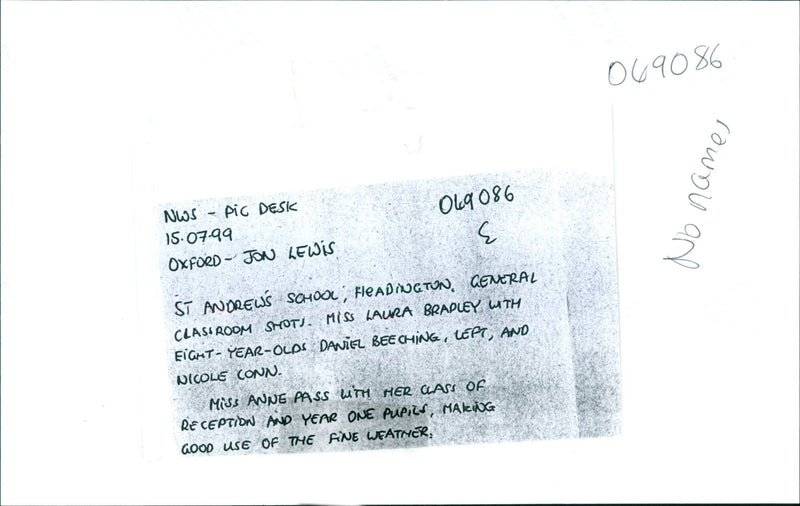 069086
No names
NWS - PIC DESK
069086
15.07.99
OXFORD - JON LEWIS
ST ANDREW'S SCHOOL, HEADINGTON. GENERAL
CLASSROOM SHOTS. MISS LAURA BRADLEY WITH
EIGHT-YEAR-OLDS DANIEL BEECHING, LEFT, AND
NICOLE CONN.
MISS ANNE PASS WITH HER CLASS OF
RECEPTION AND YEAR ONE PUPILS, MAKING
GOOD USE OF THE FINE WEATHER.